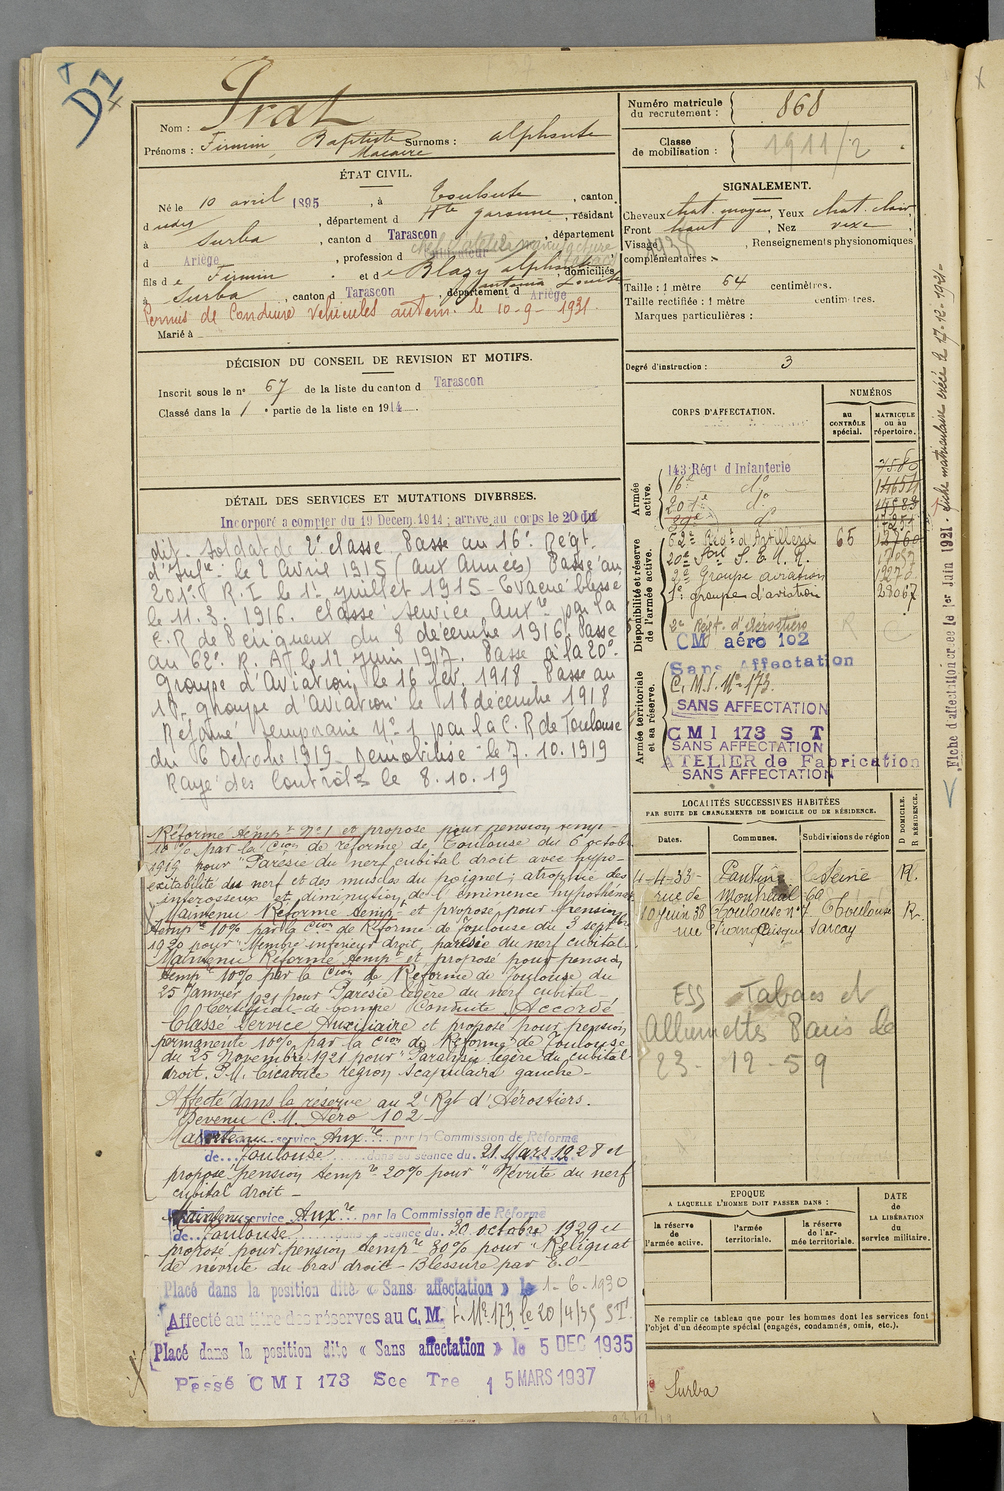 D1
Nom : Prat
Prénoms : Firmin, Baptiste Surnoms : alphonse
Macaire
Numéro matricule
du recrutement : 868
Classe
de mobilisation : 1911/2
ÉTAT CIVIL.
Né le 10 avril 1895, à Toulouse, canton
d udny, département d Hte garonne, résidant
à Surba, canton d Tarascon, département
d Ariège, profession d chef d'atelier manufacture
tabacs
fils d e Firmin et d e Blazy alphonsine, domiciliés
Antonia Louise
à Surba, canton d Tarascon, département d Ariège
Permis de Conduire Véhicules autom. le 10-9-1931.
Marié à
SIGNALEMENT.
Cheveux chat. moyen, Yeux chat. clair
Front haut, Nez vexe,
Visage, Renseignements physionomiques
1938
complémentaires :
Taille : 1 mètre 64 centimètres.
Taille rectifiée : 1 mètre centimètres.
Marques particulières :
Degré d'instruction : 3
DÉCISION DU CONSEIL DE REVISION ET MOTIFS.
Inscrit sous le n° 67 de la liste du canton d Tarascon
Classé dans la 1e partie de la liste en 1914.
DÉTAIL DES SERVICES ET MUTATIONS DIVERSES.
Incorporé à compter du 19 Décem. 1914 ; arrivé au corps le 20 dud
dit. Soldat de 2e classe. Passé au 16e Regt
d'Infie le 2 Avril 1915 (aux Armées) Passé au
201e R.I. le 1er juillet 1915 - Evacué blessé
le 11.3.1916. Classé service Auxre par la
C.R de Périgueux du 8 décembre 1916 Passé
au 62e R. A. le 12 juin 1917. Passé à la 20e
Groupe d'Aviation le 16 fév. 1918 - Passé au
1er groupe d'aviation le 18 décembre 1918
Réformé temporaire N° 1 par la C.R de Toulouse
du 6 Octobre 1919 Démobilisé le 7.10.1919
Rayé des Contrôles le 8.10.19
Réforme tempre N° 1 et proposé pour pension temp-
10% par la Cion de réforme de Toulouse du 6 octobre
1919 pour "Parésie du nerf cubital droit avec hypo-
excitabilité du nerf et des muscles du poignet; atrophie des
interosseux et diminution de l'éminence hypothénar
Maintenu Réforme temp- et proposé pour Pension
tempre 10% par la Cion de Réforme de Toulouse du 3 septbre
1920 pour "Membre inférieur droit, parésie du nerf cubital
Maintenu Réforme tempre et proposé pour pension
tempre 10% par la Cion de Réforme de Toulouse du
25 Janvier 1921 pour Parésie légère du nerf cubital-
Certificat de bonne Conduite Accordé
Classé Service Auxiliaire et proposé pour pension
permanente 10% par la Cion de Réforme de Toulouse
du 25 Novembre 1921 pour "Paralysie légère du cubital
droit. P.M. Cicatrice région scapulaire gauche-
Affecté dans la réserve au 2e Rgt d'Aérostiers.
Devenu C.M. Aéro 102-
Maintenu service Auxre par la Commission de Réforme
de Toulouse dans sa séance du 21 Mars 1928 et
proposé pension tempre 20% pour "Névrite du nerf
cubital droit-
Maintenu service Auxre par la Commission de Réforme
de Toulouse dans sa séance du 30 octobre 1929 et
proposé pour pension tempre 30% pour "Reliquat
de névrite du bras droit - Blessure par E.O
Placé dans la position dite « Sans affectation » le 1-6-1930
Affecté au titre des réserves au C.M. I. N° 173, le 20/4/35 ST.
Placé dans la position dite « Sans affectation » le 5 DEC 1935
Passé CMI 173 Sce Tre 15 MARS 1937
CORPS D'AFFECTATION.
NUMÉROS
au
CONTRÔLE
spécial.
MATRICULE
ou au
répertoire.
Armée
active.
143 Régt d'Infanterie
16e d°
201e d°
Disponibilité et réserve
de l'armée active.
62e Regt d'Artillerie 65
20e
2e Groupe aviation
1er groupe d'aviation 28067
2e Regt. d'Aérostiers
CM aéro 102
Sans Affectation
Armée territoriale
et sa réserve.
C.M.I. N° 173.
SANS AFFECTATION
CMI 173 S T
SANS AFFECTATION
ATELIER de Fabrication
SANS AFFECTATION
LOCALITÉS SUCCESSIVES HABITÉES
PAR SUITE DE CHANGEMENTS DE DOMICILE OU DE RÉSIDENCE.
Dates. Communes. Subdivisions de région
D. DOMICILE.
R. RÉSIDENCE.
4-4-33- Pantin Seine R.
rue de Montreuil 60
10 juin 38 Toulouse n° 7 Toulouse R.
rue Sarcey
ESS Tabacs et
Allumettes Paris le
23-12-59
EPOQUE
A LAQUELLE L'HOMME DOIT PASSER DANS :
la réserve
de
l'armée active.
l'armée
territoriale.
la réserve
de l'ar-
mée territoriale.
DATE
de
LA LIBÉRATION
du
service militaire.
Ne remplir ce tableau que pour les hommes dont les services font
l'objet d'un décompte spécial (engagés, condamnés, omis, etc.).
Surba
Fiche d'affectation créée le 1er Juin 1921 - fiche matriculaire créée le 17-12-1931-